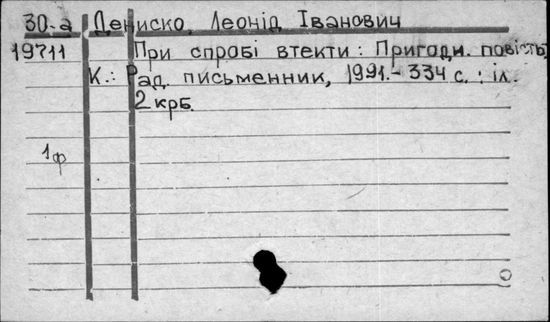 30-а Дениско, Леонід Іванович
19711 При спробі втекти: Пригодн. повість,
К.: Рад. письменник, 1991.- 334 с.: іл.
2 крб.
1ф